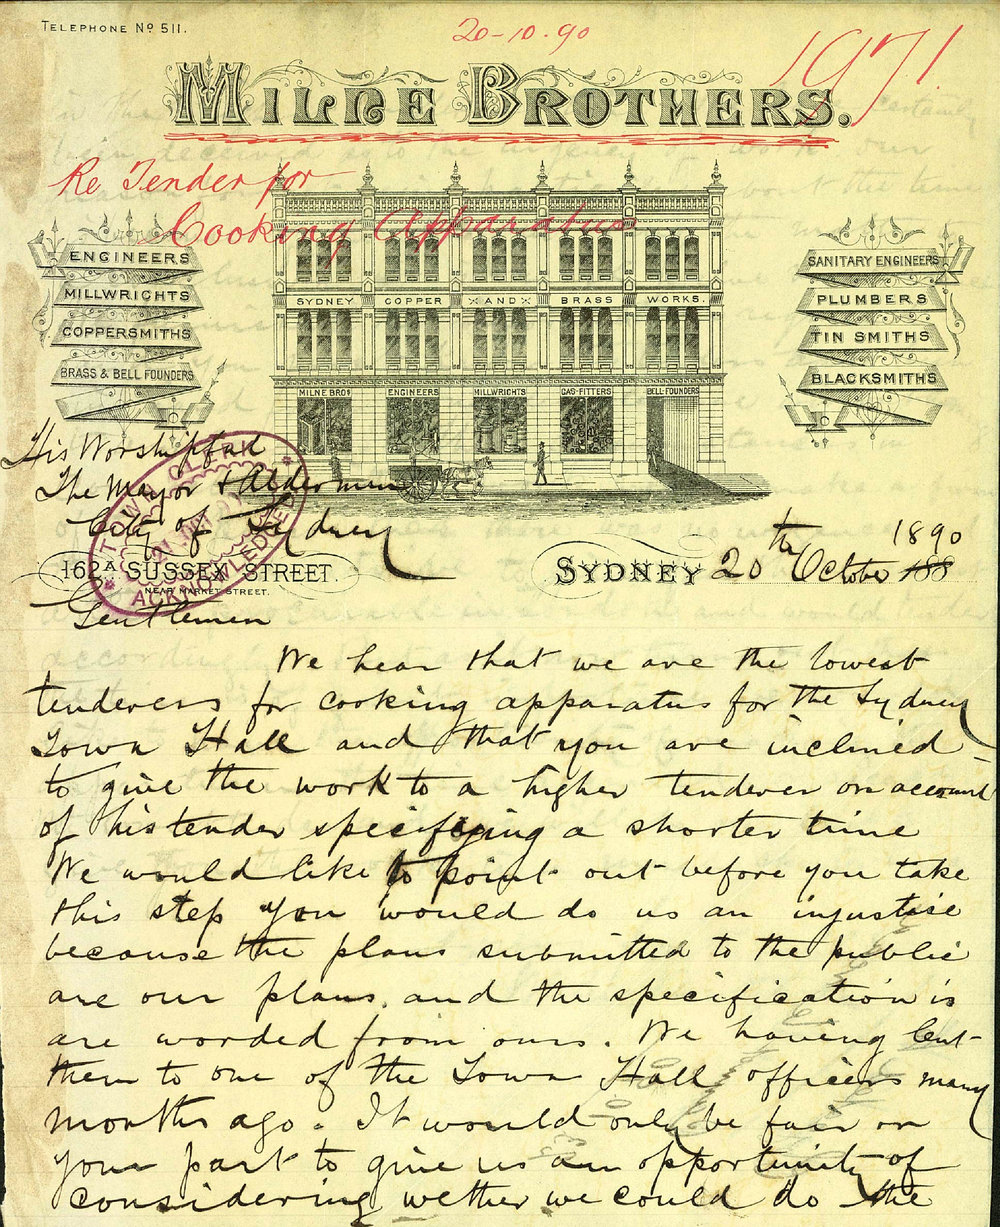 TELEPHONE No 511.
20-10.90
1971
MILNE BROTHERS.
Re Tender for
Cooking Apparatus
ENGINEERS
MILLWRIGHTS
COPPERSMITHS
BRASS & BELL FOUNDERS
SANITARY ENGINEERS
PLUMBERS
TIN SMITHS
BLACKSMITHS
SYDNEY COPPER AND BRASS WORKS.
MILNE BROS ENGINEERS MILLWRIGHTS GAS-FITTERS BELL-FOUNDERS
His Worshipful
The Mayor & Aldermen
City of Sydney
TOWN CLERK
ACKNOWLEDGED
162A SUSSEX STREET.
NEAR MARKET STREET.
SYDNEY 20th October 188 1890
Gentlemen
We hear that we are the lowest
tenderers for cooking apparatus for the Sydney
Town Hall and that you are inclined
to give the work to a higher tenderer on account
of his tender specifying a shorter time
We would like to point out before you take
this step you would do us an injustice
because the plans submitted to the public
are our plans, and the specification is
are worded from ours. We having lent
them to one of the Town Hall officers many
months ago. It would only be fair on
your part to give us an opportunity of
considering wether we could do the